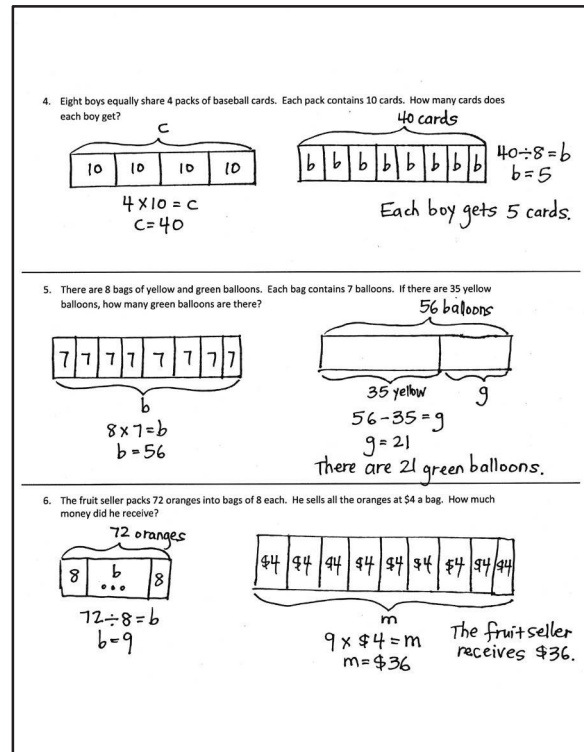 4. Eight boys equally share 4 packs of baseball cards. Each pack contains 10 cards. How many cards does
each boy get?
c
10 10 10 10
4 x 10 = c
c = 40
40 cards
b b b b b b b b
40 ÷ 8 = b
b = 5
Each boy gets 5 cards.
5. There are 8 bags of yellow and green balloons. Each bag contains 7 balloons. If there are 35 yellow
balloons, how many green balloons are there?
7 7 7 7 7 7 7 7
b
8 x 7 = b
b = 56
56 balloons
35 yellow g
56 - 35 = g
g = 21
There are 21 green balloons.
6. The fruit seller packs 72 oranges into bags of 8 each. He sells all the oranges at $4 a bag. How much
money did he receive?
72 oranges
8 b ... 8
72 ÷ 8 = b
b = 9
$4 $4 $4 $4 $4 $4 $4 $4 $4
m
9 x $4 = m
m = $36
The fruit seller
receives $36.